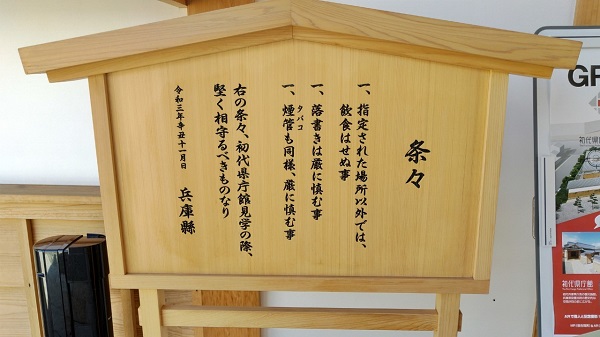 条々
一、指定された場所以外では、
飲食はせぬ事
一、落書きは厳に慎む事
一、煙管も同様、厳に慎む事
タバコ
右の条々、初代県庁館見学の際、
堅く相守るべきものなり
令和三年辛丑十一月日
兵庫縣
GR
初代県庁館